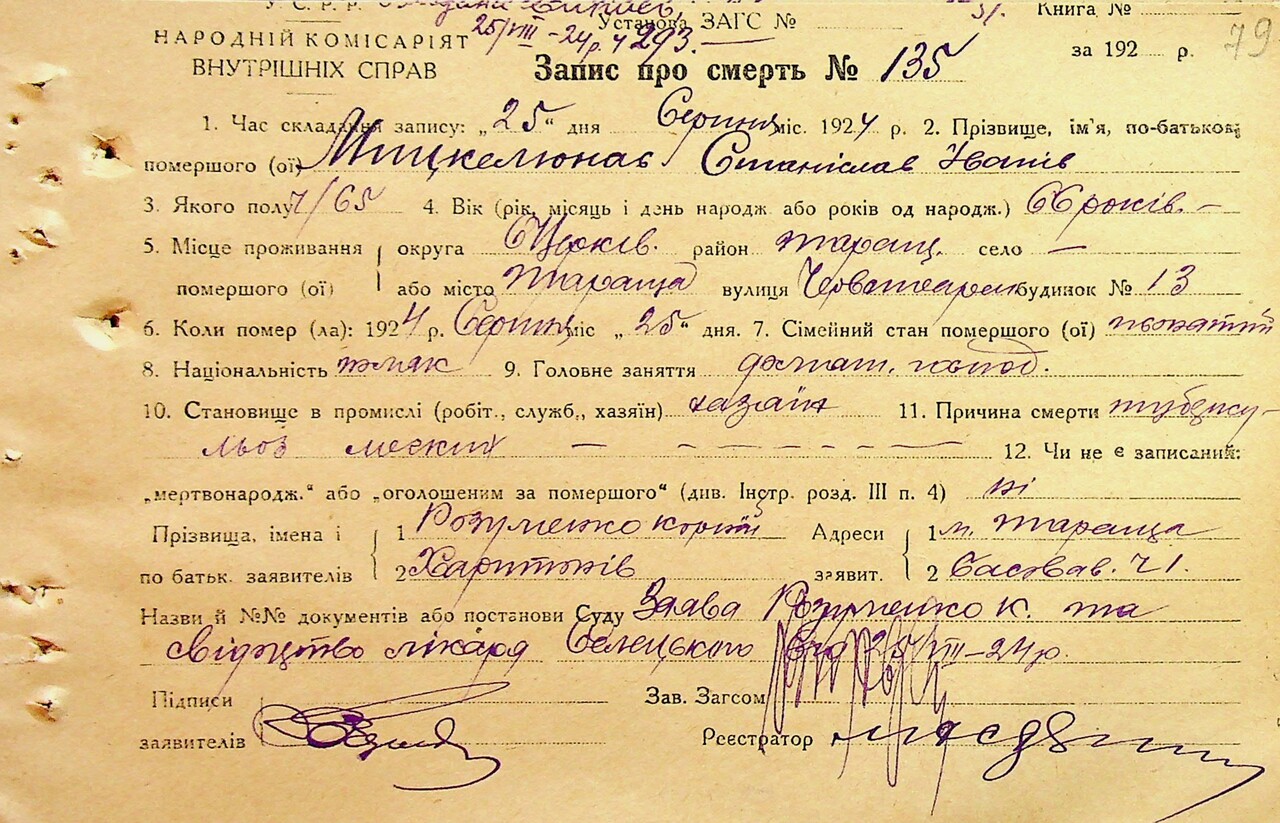 У. С. Р. Р.
Установа ЗАГС №
Книга №
НАРОДНІЙ КОМІСАРІЯТ 25/VIII-24р. ч 293.
ВНУТРІШНІХ СПРАВ
за 192 р. 79
Запис про смерть № 135
1. Час складання запису: „25“ дня Серпня міс. 1924 р. 2. Прізвище, ім'я, по-батькові
помершого (ої) Мицкелюнас Станіслав Іванів
3. Якого полу ч/65 4. Вік (рік, місяць і день народж. або років од народж.) 66 років.-
5. Місце проживання округа Б Церків. район таращ. село —
помершого (ої) або місто Тараща вулиця будинок № 13
6. Коли помер (ла): 1924 р. Серпня міс „25“ дня. 7. Сімейний стан помершого (ої)
8. Національність 9. Головне заняття
10. Становище в промислі (робіт., служб., хазяїн) хазаїн 11. Причина смерти туберку-
льоз 12. Чи не є записаний:
„мертвонародж.“ або „оголошеним за помершого“ (див. Інстр. розд. III п. 4) ні
Прізвища, імена і 1 Розуменко Адреси 1 м. Тараща
по батьк. заявителів 2 Харитонів заявит. 2
Назви й №№ документів або постанови Суду Заява Розуменко К. та
свідоцтво лікаря Белецького від 25/VIII-24р.
Підписи Зав. Загсом
заявителів Реєстратор